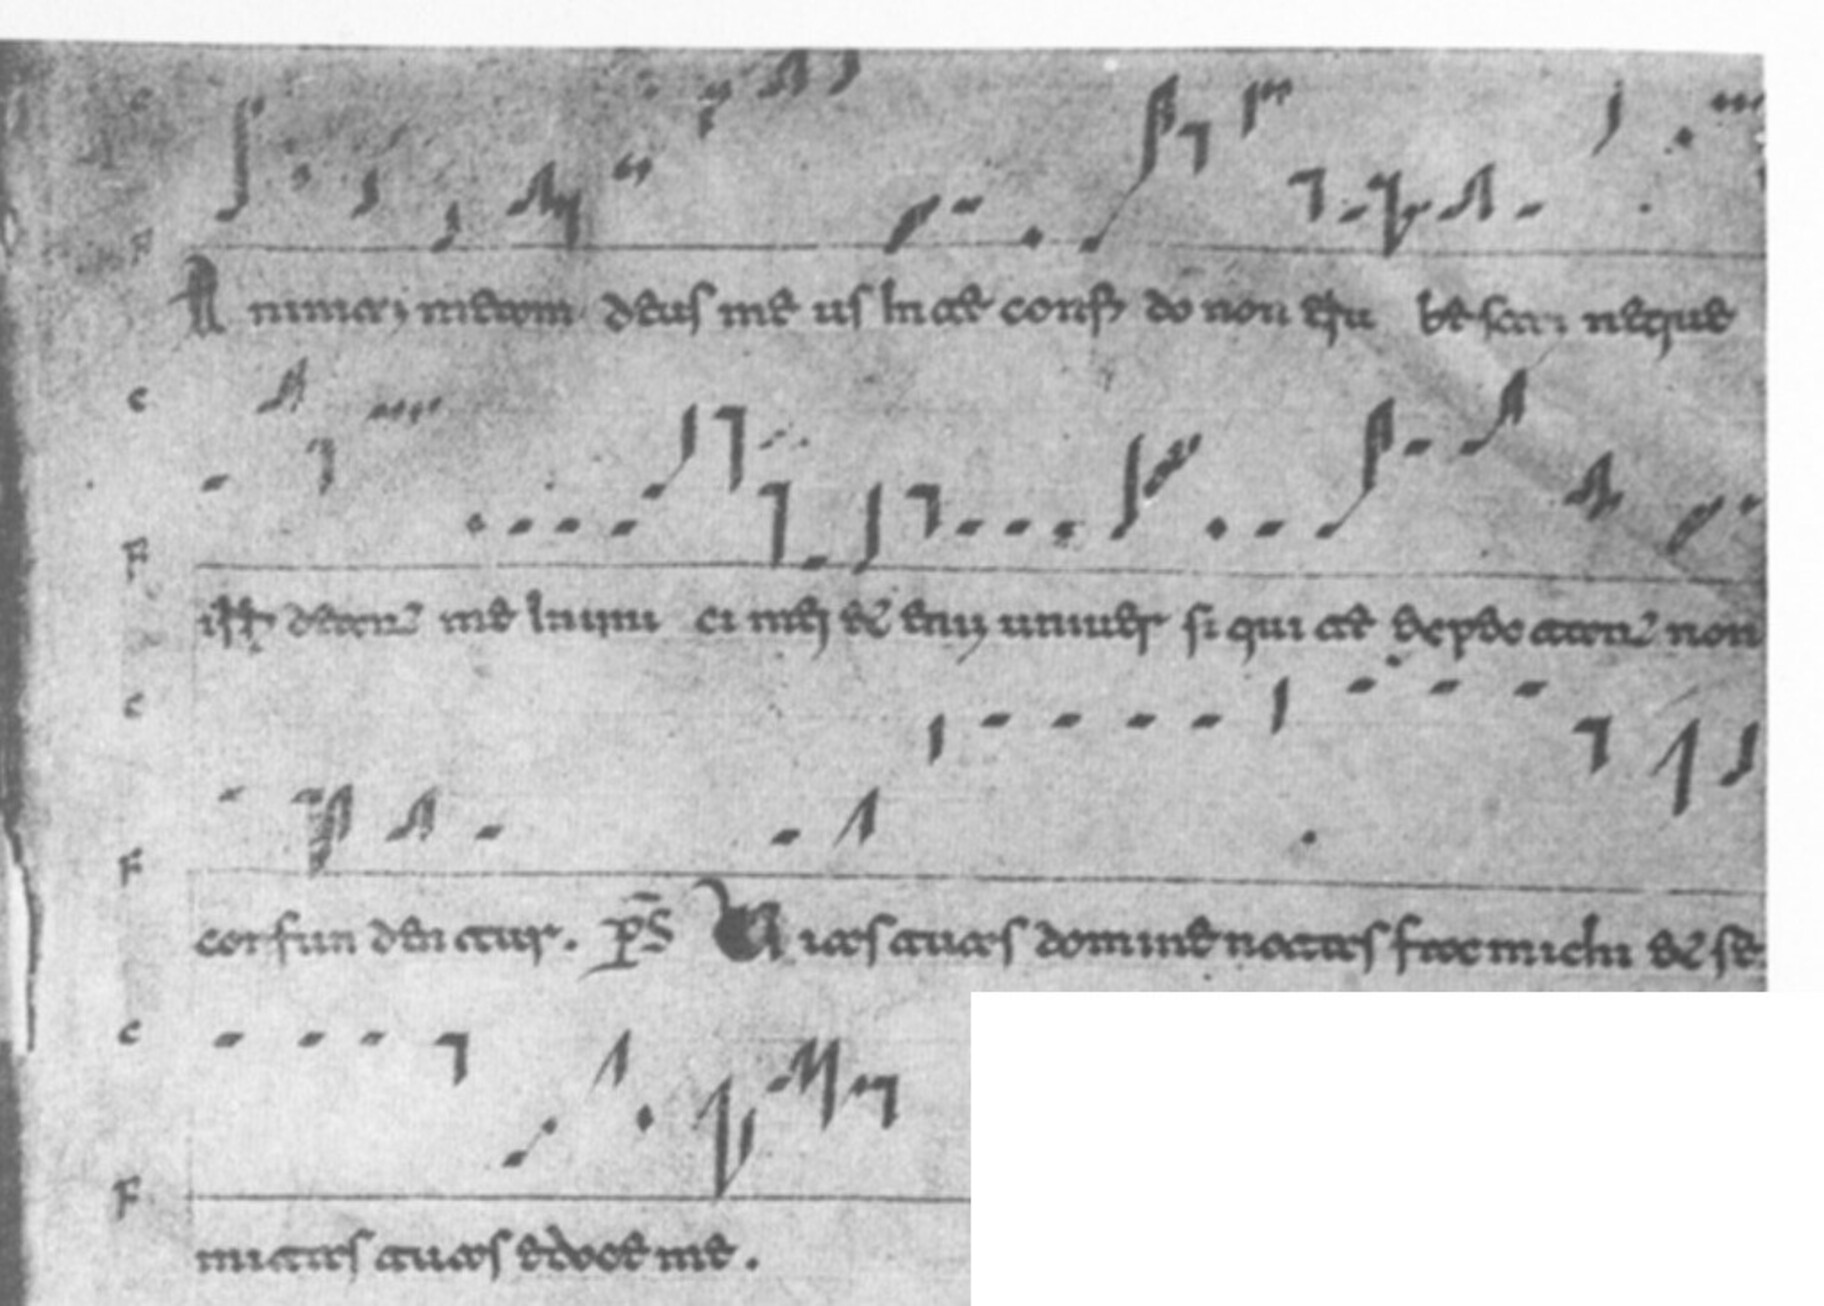 c
F
Animam meam deus me us In te confi do non eru bescam neque
c
F
irri deant me Inimi ci mei & enim univer si qui te expectant non
c
F
confun dentur. ps Vias tuas domine notas fac michi & se
c
F
mitas tuas edoce me.